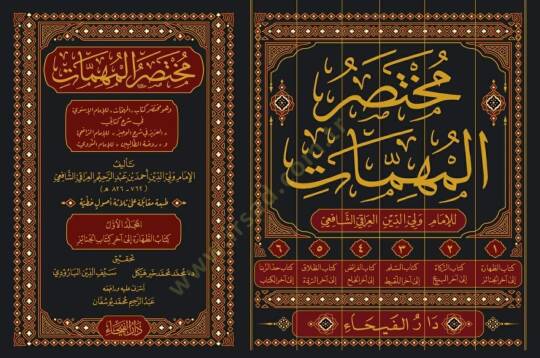 مُخْتَصَرُ المُهِمَّات
وهو مختصر كتاب «المهمات» للإمام الإسنوي
في شرح كتابي
«العزيز في شرح الوجيز» للإمام الرافعي
و«روضة الطالبين» للإمام النووي
تأليف
الإمام ولي الدين أحمد بن عبد الرحيم العراقي الشافعي
(٧٦٢ - ٨٢٦ هـ)
طبعة مقابلة على ثلاثة أصول خطية
المجلد الأول
كتاب الطهارة إلى آخر كتاب الجنائز
تحقيق
سيف الدين البارودي
أشرف عليه وراجعه
عبد الرحيم محمد يوسفان
دار الفيحاء
مُخْتَصَرُ
المُهِمَّات
للإمام ولي الدين العراقي الشافعي
١ ٢ ٣ ٤ ٥ ٦
كتاب الطهارة إلى آخر الجنائز
كتاب الزكاة إلى آخر البيع
كتاب السلم إلى آخر اللقيط
كتاب الفرائض إلى آخر الخلع
كتاب الطلاق إلى آخر الردة
كتاب حد الزنا إلى آخر الكتاب
دار الفيحاء